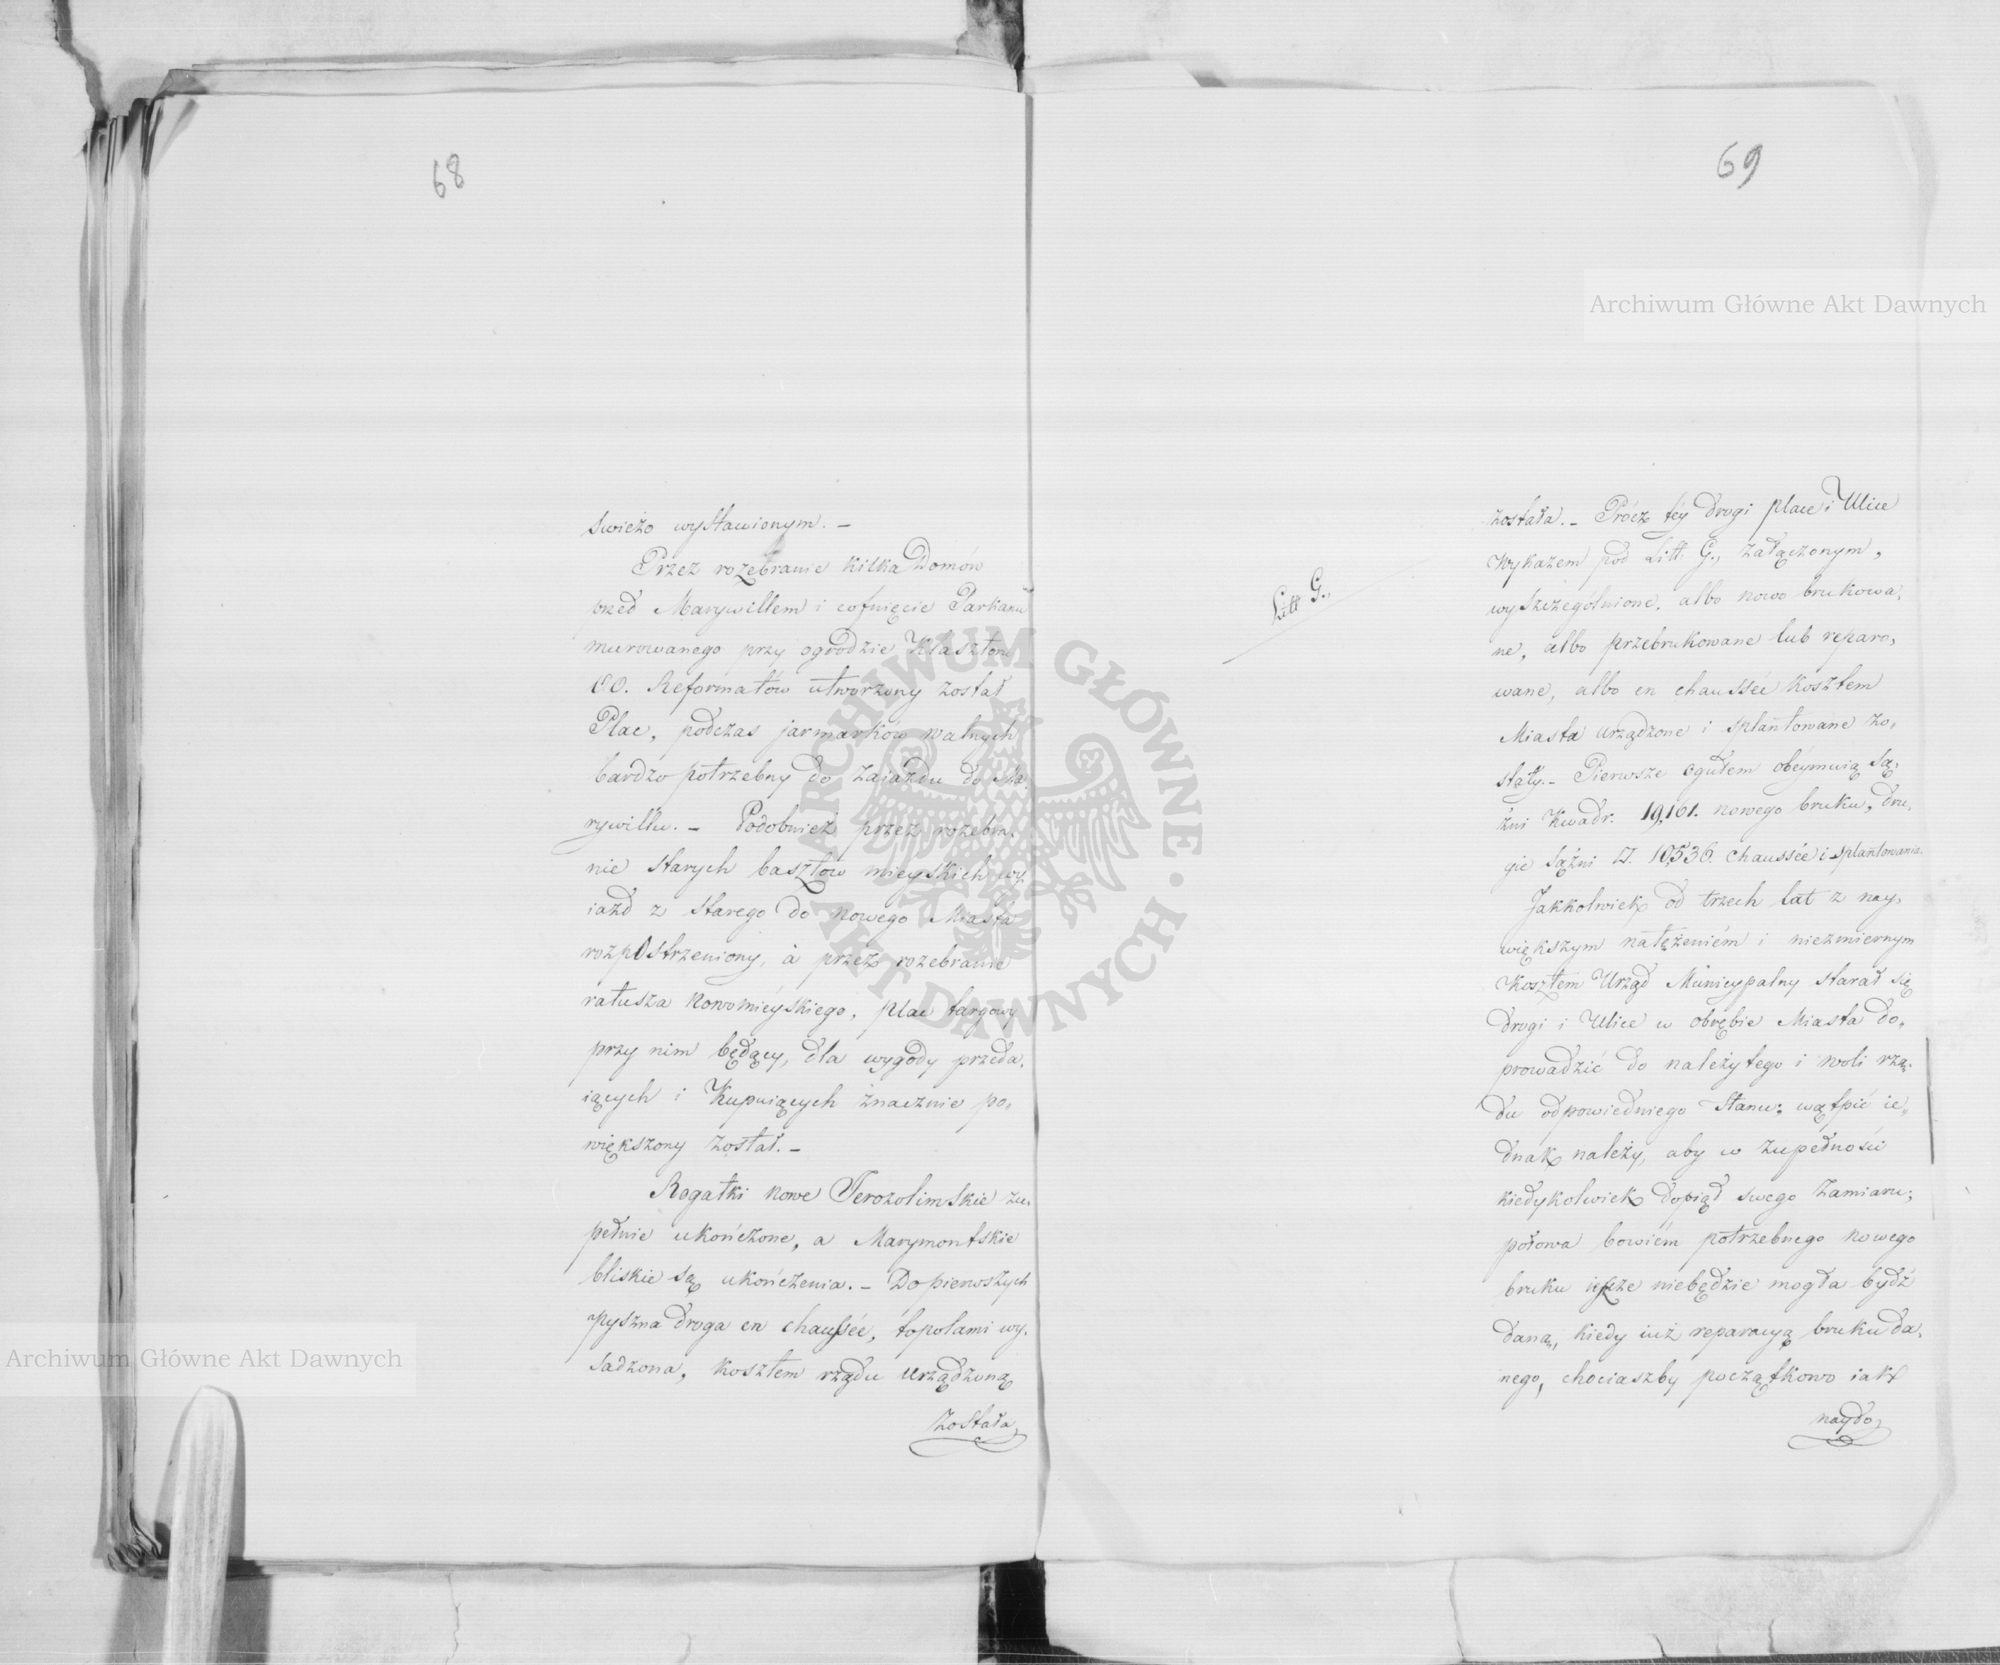 68
świeżo wystawionym. –
Przez rozebranie kilka Domów
przed Marywillem i cofnięcie Parkanu
murowanego przy ogrodzie Klasztoru
OO. Reformatów utworzony został
Plac, podczas jarmarków walnych
bardzo potrzebny do zaiazdu do Ma,
rywillu. – Podobnież przez rozebra,
nie starych basztów mieyskich wy,
iazd z starego do nowego Miasta
rozpostrzeniony, à przez rozebranie
ratusza nowomieyskiego, plac targowy
przy nim będący, dla wygody przeda,
iących i Kupuiących znacznie po,
większony został. –
Rogatki nowe Jerozolimskie zu,
pełnie ukończone, a Marymontskie
bliskie są ukończenia. – Do pierwszych
pyszna droga en chaussée, topolami wy,
sadzona, kosztem rządu urządzoną
została,
69
Litt G.,
została. – Prócz téy drogi place i Ulice
Wykazem pod Litt. G., załączonym,
wyszczególnione, albo nowo brukowa,
ne, albo przebrukowane lub reparo,
wane, albo en chaussée kosztem
Miasta urządzone i splantowane zo,
stały. – Pierwsze ogułem obeymuią Są,
żni Kwadr. 19,101. nowego bruku, dru,
gie Sążni □. 10,536. chaussée i splantowania.
Jakkolwiek od trzech lat z nay,
większym natężeniém i niezmiernym
Kosztem Urząd Municypalny starał się
drogi i Ulice w obrębie Miasta do,
prowadzić do należytego i woli rzą,
du odpowiedniego Stanu; wątpić ie,
dnak należy, aby w zupełności
kiedykolwiek dopiąd swego zamiaru;
połowa bowiém potrzebnego nowego
bruku ieszcze niebędzie mogła bydź
daną, kiedy iuż reparacyą bruku da,
nego, chociaszby początkowo iak
naydo,
Archiwum Główne Akt Dawnych
Archiwum Główne Akt Dawnych
ARCHIWUM GŁÓWNE • AKT DAWNYCH •